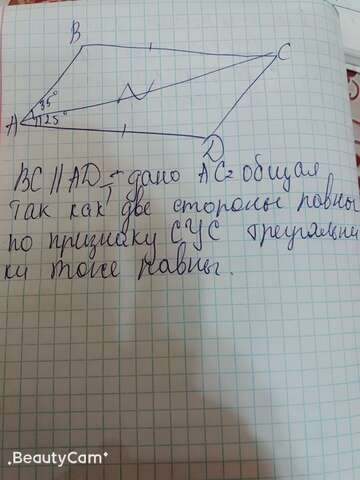 B
C
35°
A
25°
D
BC || AD - дано AC - общая
Так как две стороны равны
по признаку СУС треугольни
ки тоже равны.
BeautyCam